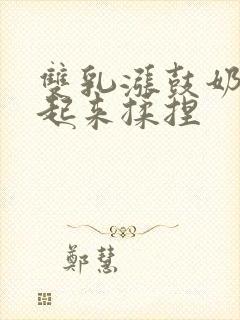 雙乳漲鼓奶
起來揉捏
鄭慧